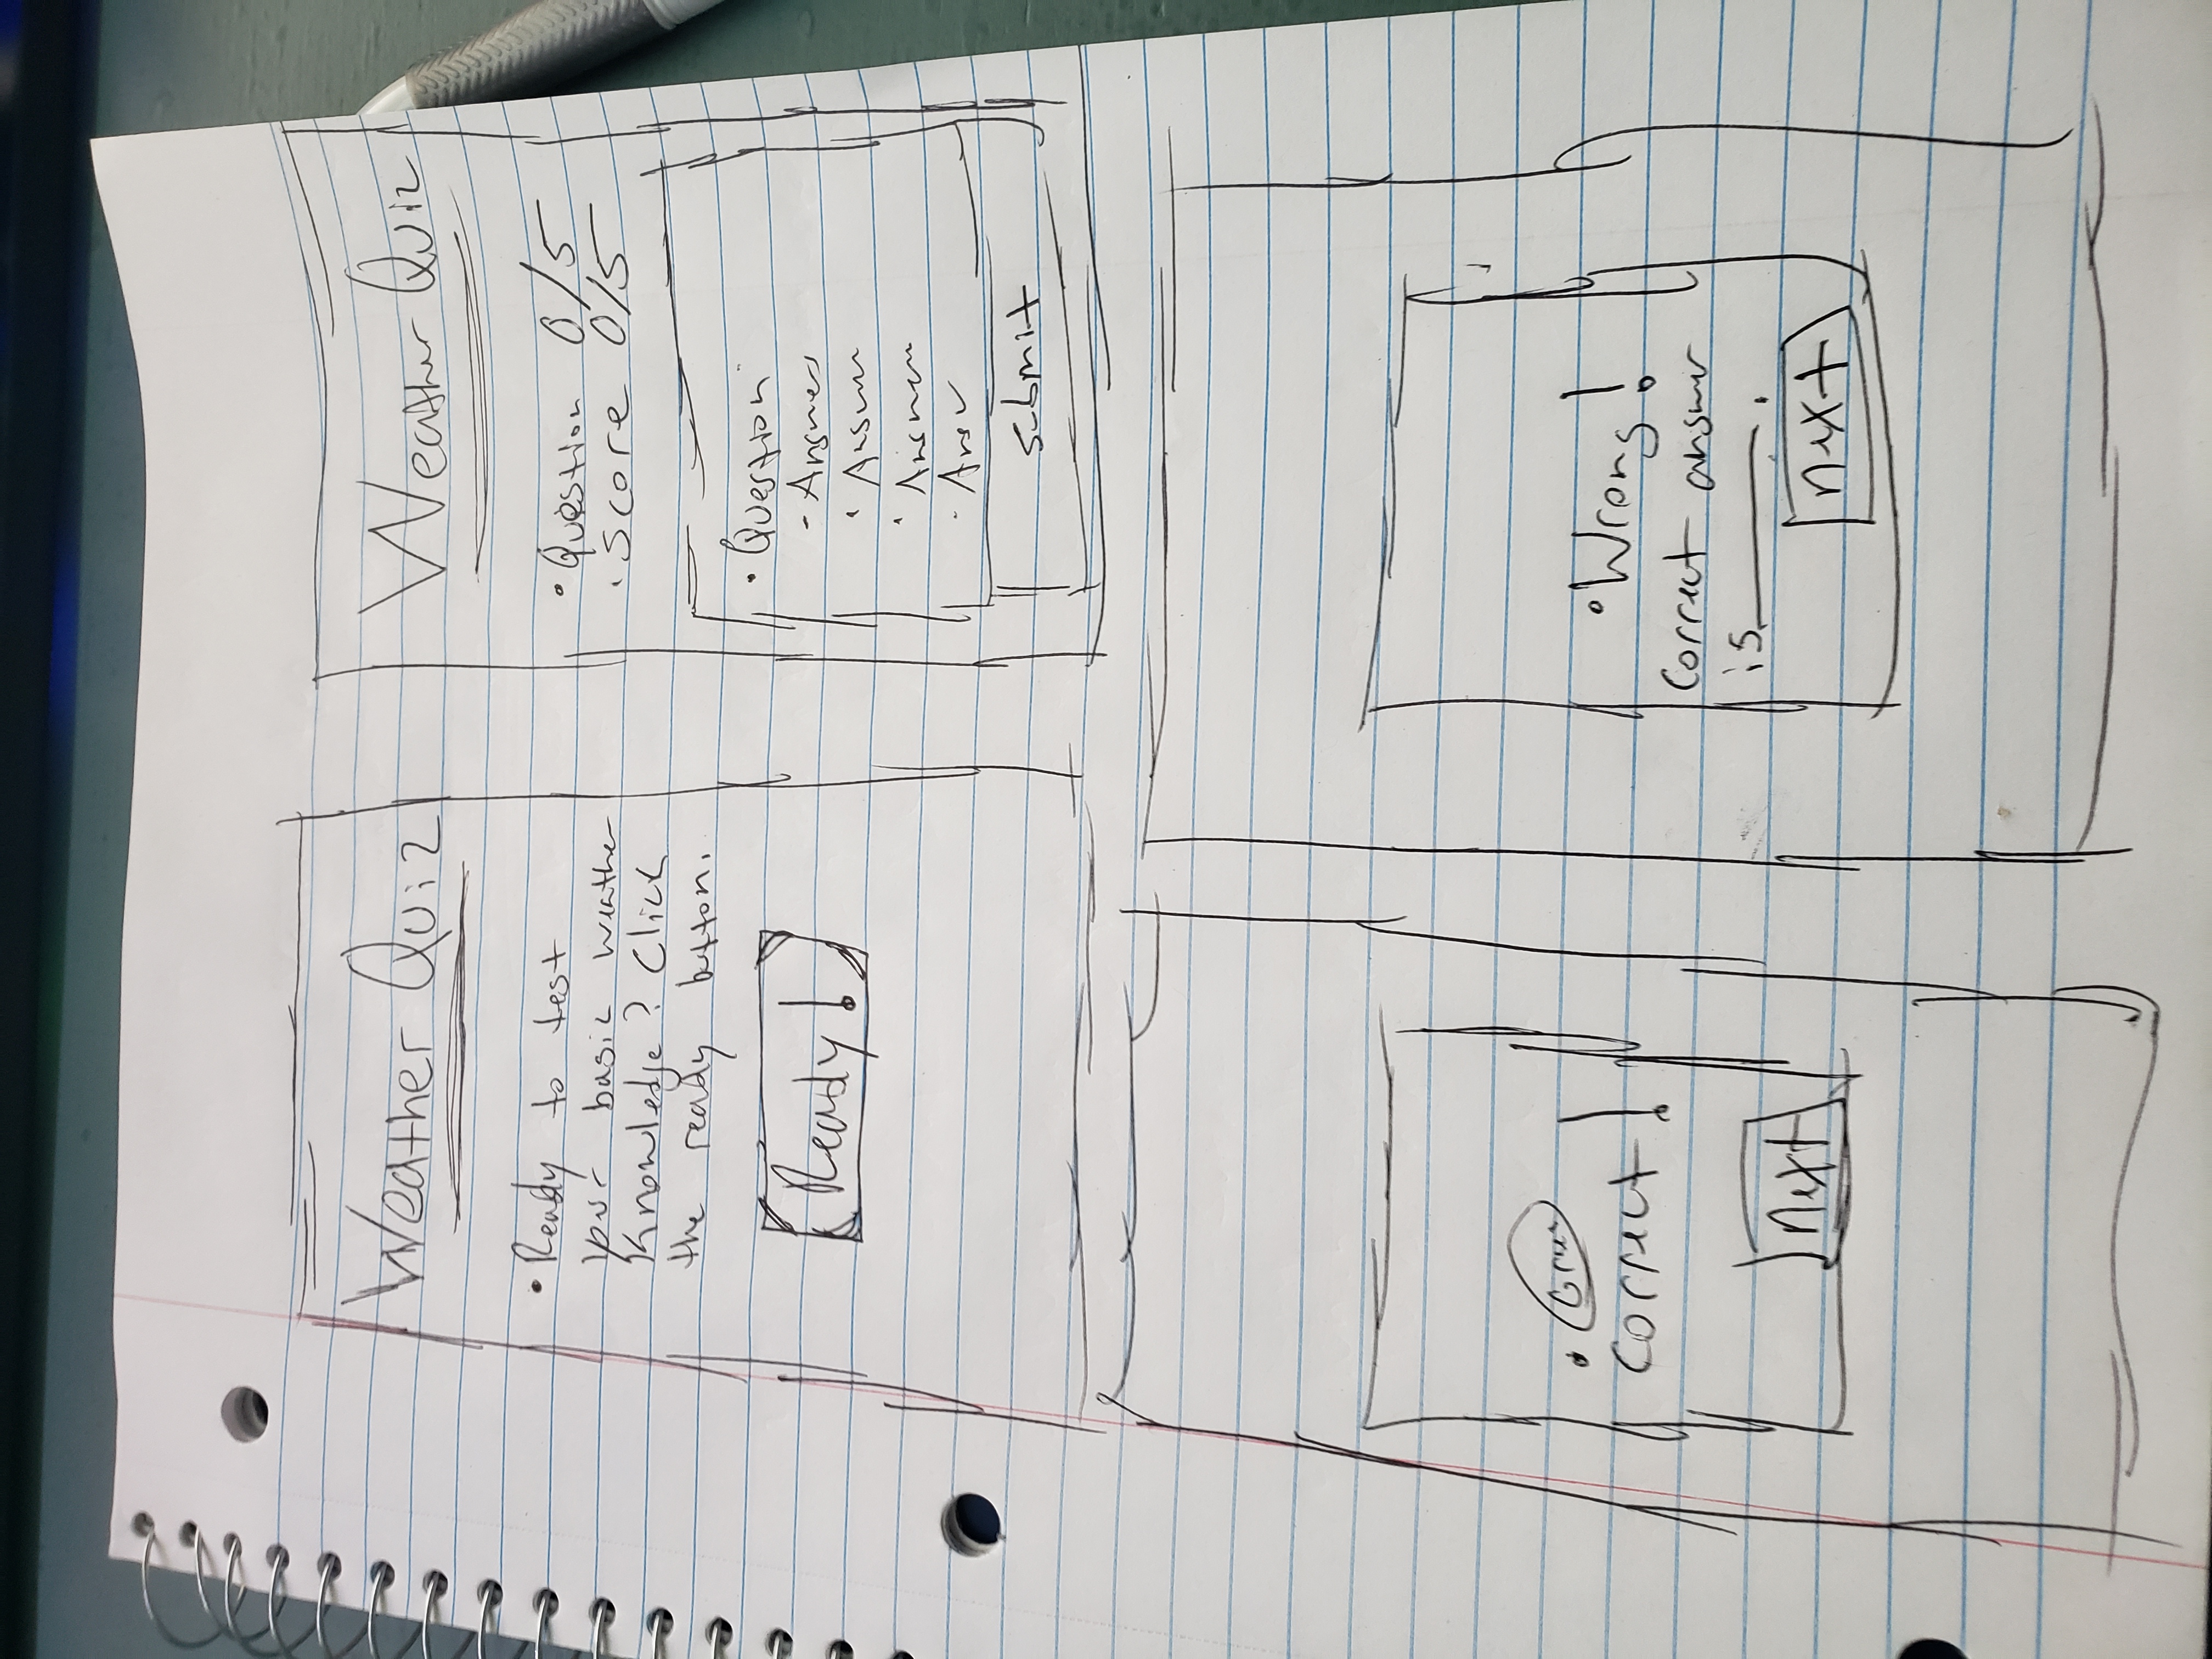 Weather Quiz
• Ready to test
your basic weather
Knowledge? Click
the ready button.
Ready!
Weather Quiz
• Question 0/5
• score 0/5
• Question
- Answers
• Answer
• Answer
• Answ
Submit
•
Correct!
next
• Wrong!
Correct answer
is ______.
next